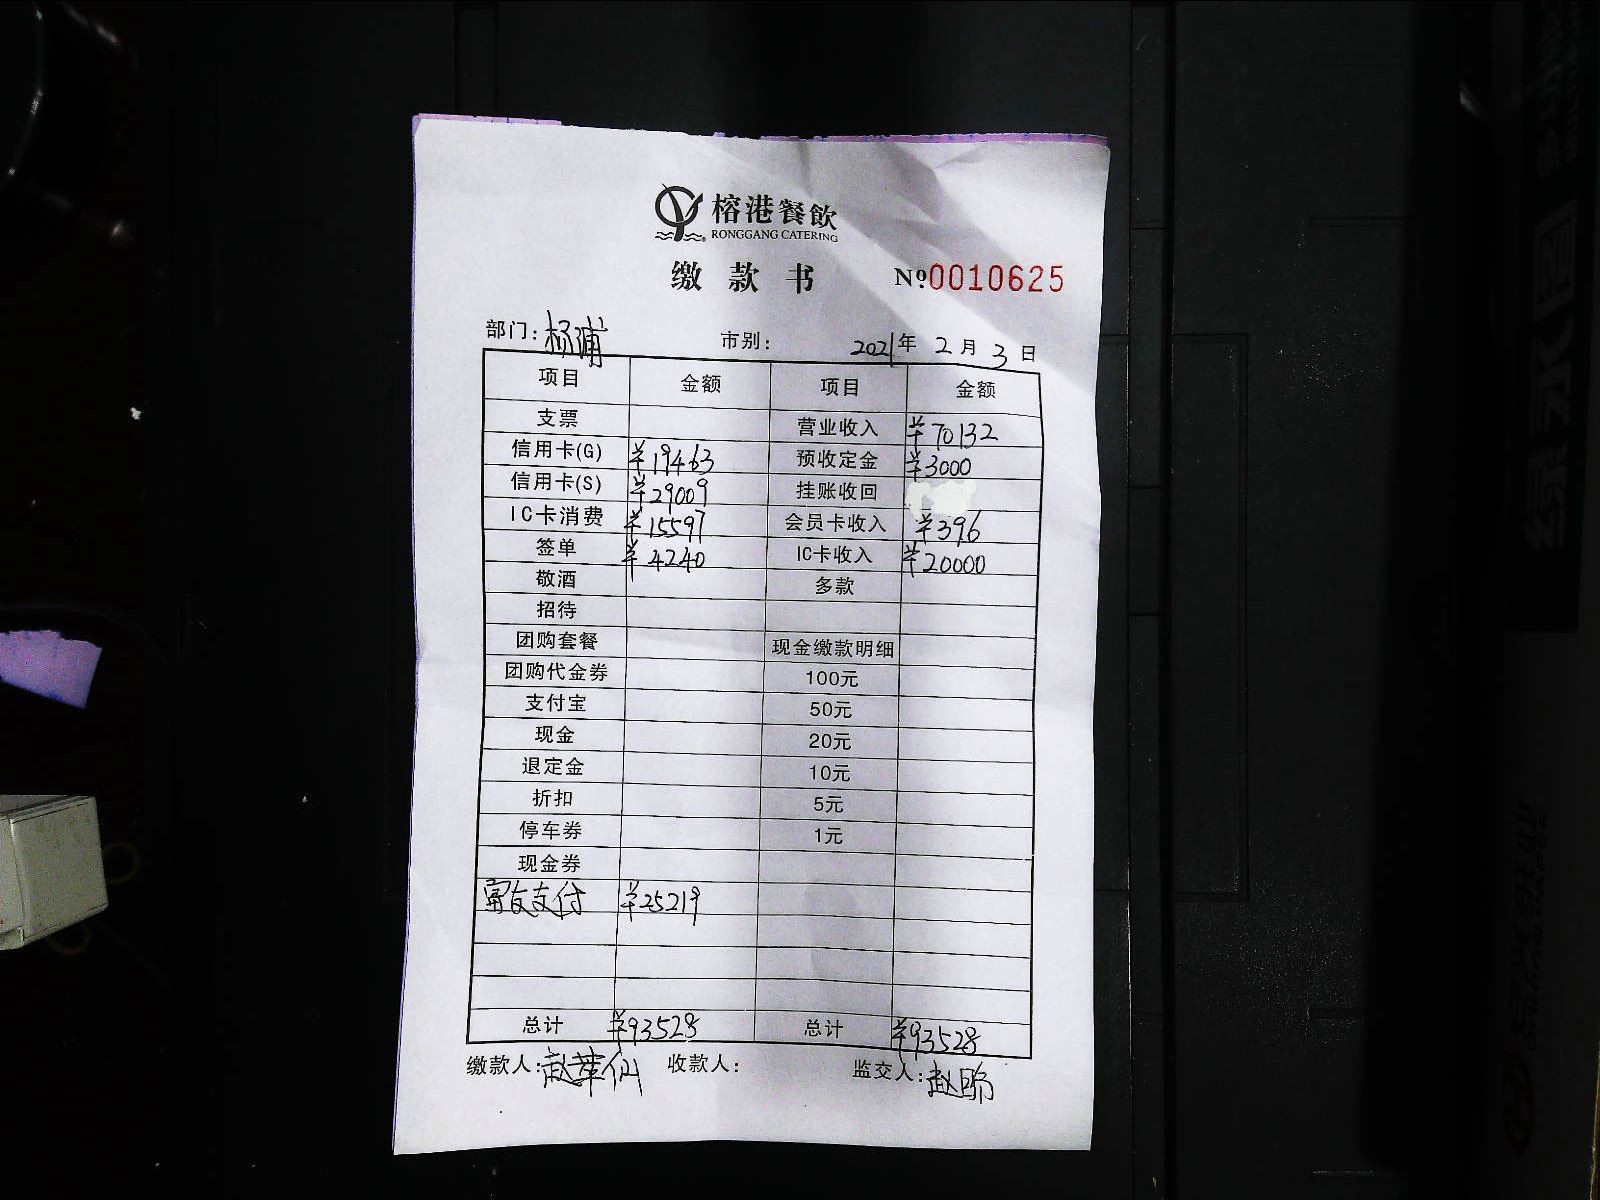 榕港餐飲
RONGGANG CATERING
缴款书 №0010625
部门：杨浦 市别： 2021年2月3日
项目 金额 项目 金额
支票 营业收入 ¥70132
信用卡(G) ¥19463 预收定金 ¥3000
信用卡(S) ¥29009 挂账收回
IC卡消费 ¥15597 会员卡收入 ¥396
签单 ¥4240 IC卡收入 ¥20000
敬酒 多款
招待
团购套餐 现金缴款明细
团购代金券 100元
支付宝 50元
现金 20元
退定金 10元
折扣 5元
停车券 1元
现金券
富友支付 ¥25219
总计 ¥93528 总计 ¥93528
缴款人：赵莲仙 收款人： 监交人：赵